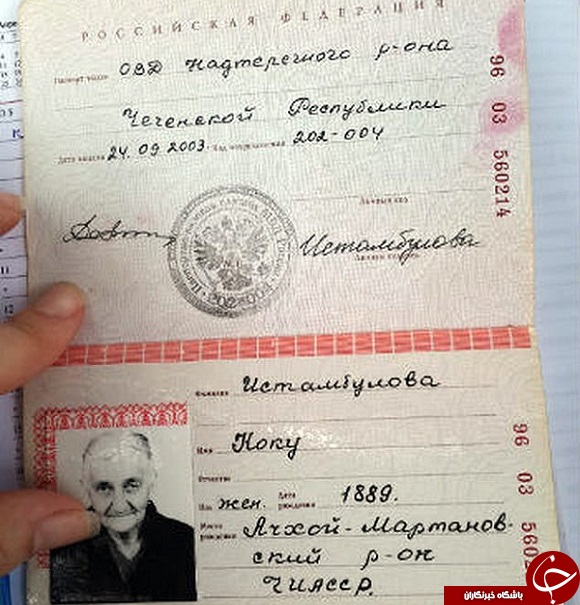 РОССИЙСКАЯ ФЕДЕРАЦИЯ
Паспорт выдан ОВД Надтеречного р-она
Чеченской Республики
Дата выдачи 24.09.2003. Код подразделения 202-004
96 03 560214
Личный код
Истамбулова
Личная подпись
Фамилия Истамбулова
Имя Коку
Отчество
Пол жен. Дата рождения 1889.
Место рождения Ачхой-Мартанов-
ский р-он
ЧИАССР.
96 03 5602
باشگاه خبرنگاران